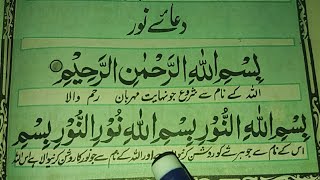 دعائے نور
بِسْمِ اللهِ الرَّحْمٰنِ الرَّحِيْمِ
اللہ کے نام سے شروع جو نہایت مہربان رحم والا
بِسْمِ اللهِ النُّوْرِ بِسْمِ اللهِ نُوْرِ النُّوْرِ بِسْمِ
اس کے نام سے جو ہر شے کو روشن اور اللہ کے نام سے جو نور کا روشن کرنیوالا ہے